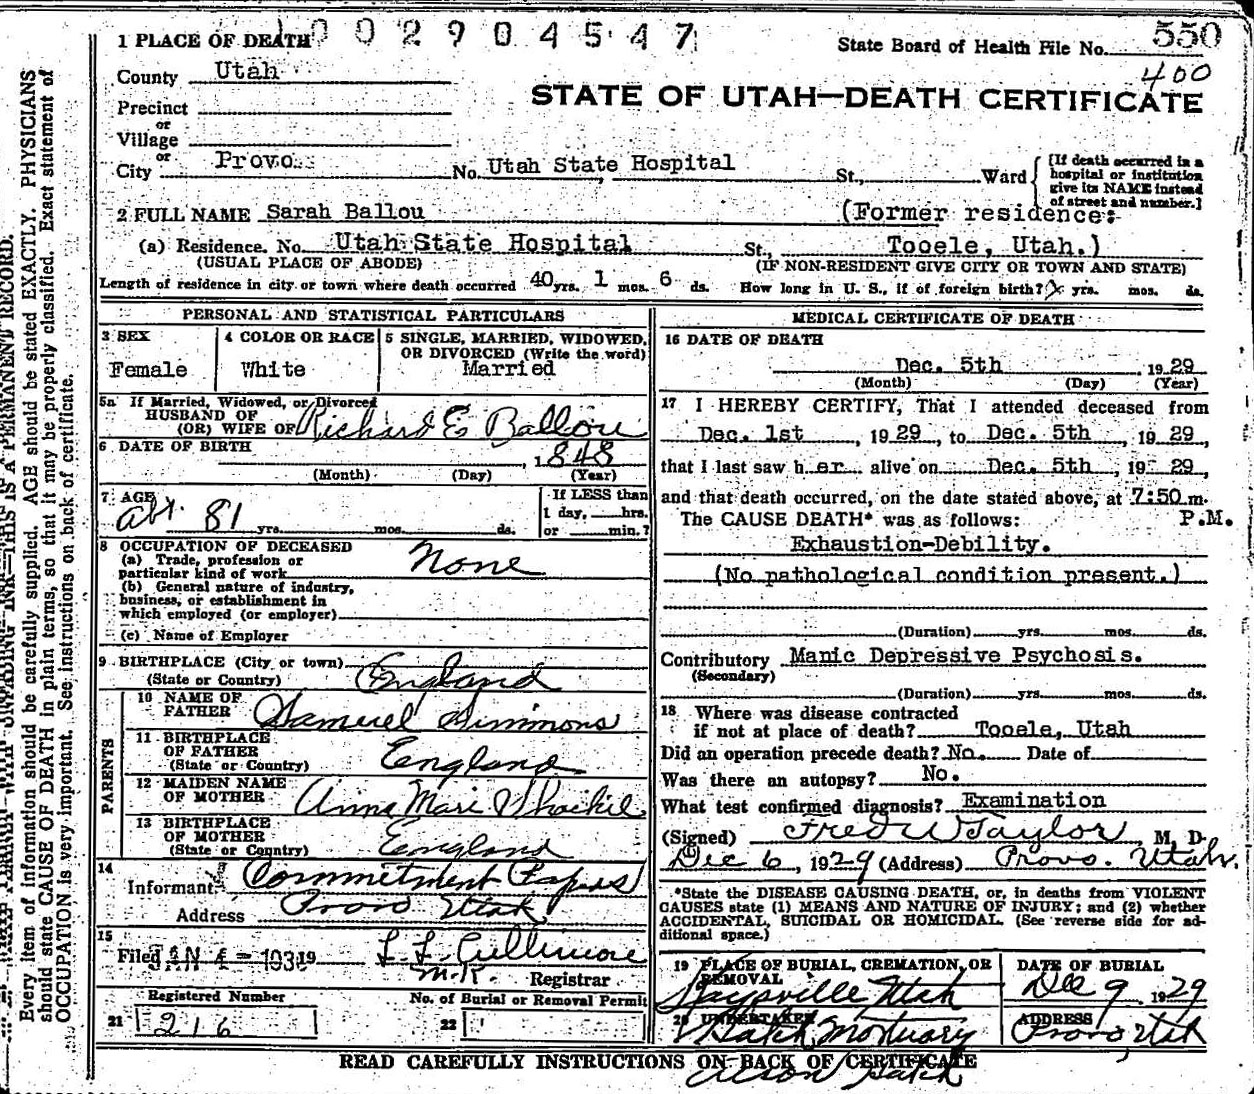 1 PLACE OF DEATH 0 0 2 9 0 4 5 4 7
State Board of Health File No. 550
400
County Utah
STATE OF UTAH—DEATH CERTIFICATE
Precinct
or
Village
or
City Provo. No. Utah State Hospital St., Ward
[If death occurred in a hospital or institution give its NAME instead of street and number.]
2 FULL NAME Sarah Ballou (Former residence:
(a) Residence. No. Utah State Hospital St., Tooele, Utah.)
(USUAL PLACE OF ABODE) (IF NON-RESIDENT GIVE CITY OR TOWN AND STATE)
Length of residence in city or town where death occurred 40 yrs. 1 mos. 6 ds. How long in U. S., if of foreign birth? yrs. mos. ds.
PERSONAL AND STATISTICAL PARTICULARS
3 SEX
Female
4 COLOR OR RACE
White
5 SINGLE, MARRIED, WIDOWED, OR DIVORCED (Write the word)
Married
5a If Married, Widowed, or Divorced
HUSBAND OF
(OR) WIFE OF Richard E Ballou
6 DATE OF BIRTH
, 1848
(Month) (Day) (Year)
7 AGE
abt. 81 yrs. mos. ds.
If LESS than
1 day, hrs.
or min.?
8 OCCUPATION OF DECEASED
(a) Trade, profession or
particular kind of work None
(b) General nature of industry,
business, or establishment in
which employed (or employer)
(c) Name of Employer
9 BIRTHPLACE (City or town)
(State or Country) England
PARENTS
10 NAME OF
FATHER Samuel Simmons
11 BIRTHPLACE
OF FATHER
(State or Country) England
12 MAIDEN NAME
OF MOTHER Anna Mari
13 BIRTHPLACE
OF MOTHER
(State or Country) England
14
Informant Commitment Papers
Address Provo Utah
15
Filed JAN 4 - 1930 19 L. L. Cullimore
M.K. Registrar
Registered Number
21 216
No. of Burial or Removal Permit
22
MEDICAL CERTIFICATE OF DEATH
16 DATE OF DEATH
Dec. 5th 1929
(Month) (Day) (Year)
17 I HEREBY CERTIFY, That I attended deceased from
Dec. 1st , 19 29 , to Dec. 5th , 19 29,
that I last saw h er alive on Dec. 5th , 19 29,
and that death occurred, on the date stated above, at 7:50 m.
The CAUSE DEATH* was as follows: P.M.
Exhaustion-Debility.
(No pathological condition present.)
(Duration) yrs. mos. ds.
Contributory Manic Depressive Psychosis.
(Secondary)
(Duration) yrs. mos. ds.
18 Where was disease contracted
if not at place of death? Tooele, Utah
Did an operation precede death? No. Date of
Was there an autopsy? No.
What test confirmed diagnosis? Examination
(Signed) Fred W Taylor M. D.
Dec 6, 1929 (Address) Provo. Utah.
*State the DISEASE CAUSING DEATH, or, in deaths from VIOLENT
CAUSES state (1) MEANS AND NATURE OF INJURY; and (2) whether
ACCIDENTAL, SUICIDAL OR HOMICIDAL. (See reverse side for ad-
ditional space.)
19 PLACE OF BURIAL, CREMATION, OR
REMOVAL
Kaysville, Utah
DATE OF BURIAL
Dec 9, 1929
20 UNDERTAKER
Hatch Mortuary
ADDRESS
Provo, Utah
READ CAREFULLY INSTRUCTIONS ON BACK OF CERTIFICATE
Hatch
Every item of information should be carefully supplied. AGE should be stated EXACTLY. PHYSICIANS
should state CAUSE OF DEATH in plain terms, so that it may be properly classified. Exact statement of
OCCUPATION is very important. See instructions on back of certificate.
THIS IS A PERMANENT RECORD.